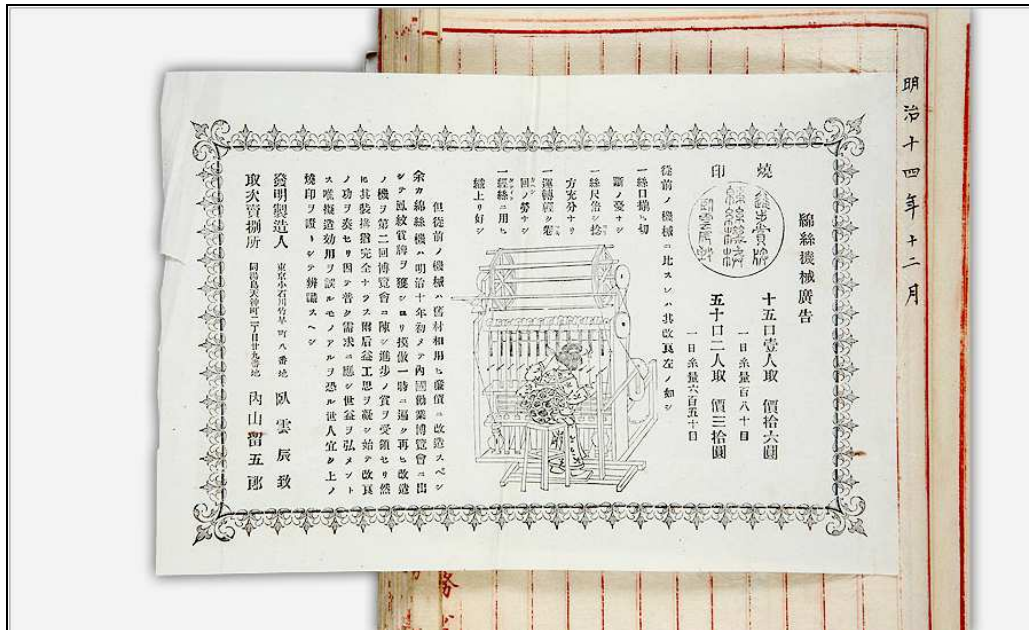 明治十四年十二月
綿絲機械廣告
燒印
十五口壹人取 價拾六圓
一日糸量百八十目
五十口二人取 價三拾圓
一日糸量六百五十目
從前ノ機械ニ比スレハ其改良左ノ如シ
一絲口揃ヒ切
斷ノ憂ナシ
一絲尺治シ捻
方充分ナリ
一運轉輕シ卷
回ノ勞ナシ
一經絲ニ用ヒ
織上リ好シ
但從前ノ機械ハ舊材相用ヒ廉價ニ改造スヘシ
余カ綿絲機ハ明治十年初メテ內國勸業博覽會ニ出
シテ鳳紋賞牌ヲ獲シヨリ摸倣一時ニ遍ク再ヒ改造
ノ機ヲ第二回博覽會ニ陳シ進步ノ賞ヲ受領セリ然
ヒ其裝搆猶完全ナラス爾后益工思ヲ凝シ始テ改良
ノ功ヲ奏セリ因テ普ク需求ニ應シ世益ヲ弘メント
ス唯擬造効用ヲ誤ルモノアルヲ恐ル世人宜ク上ノ
燒印ヲ證トシテ辨識スヘシ
發明製造人 東京小石川竹早町八番地 臥雲辰致
取次賣捌所 同湯島天神町二丁目廿九番地 內山留五郎